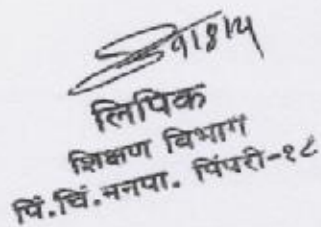 लिपिक
शिक्षण विभाग
पिं.चिं.मनपा. पिंपरी-१८